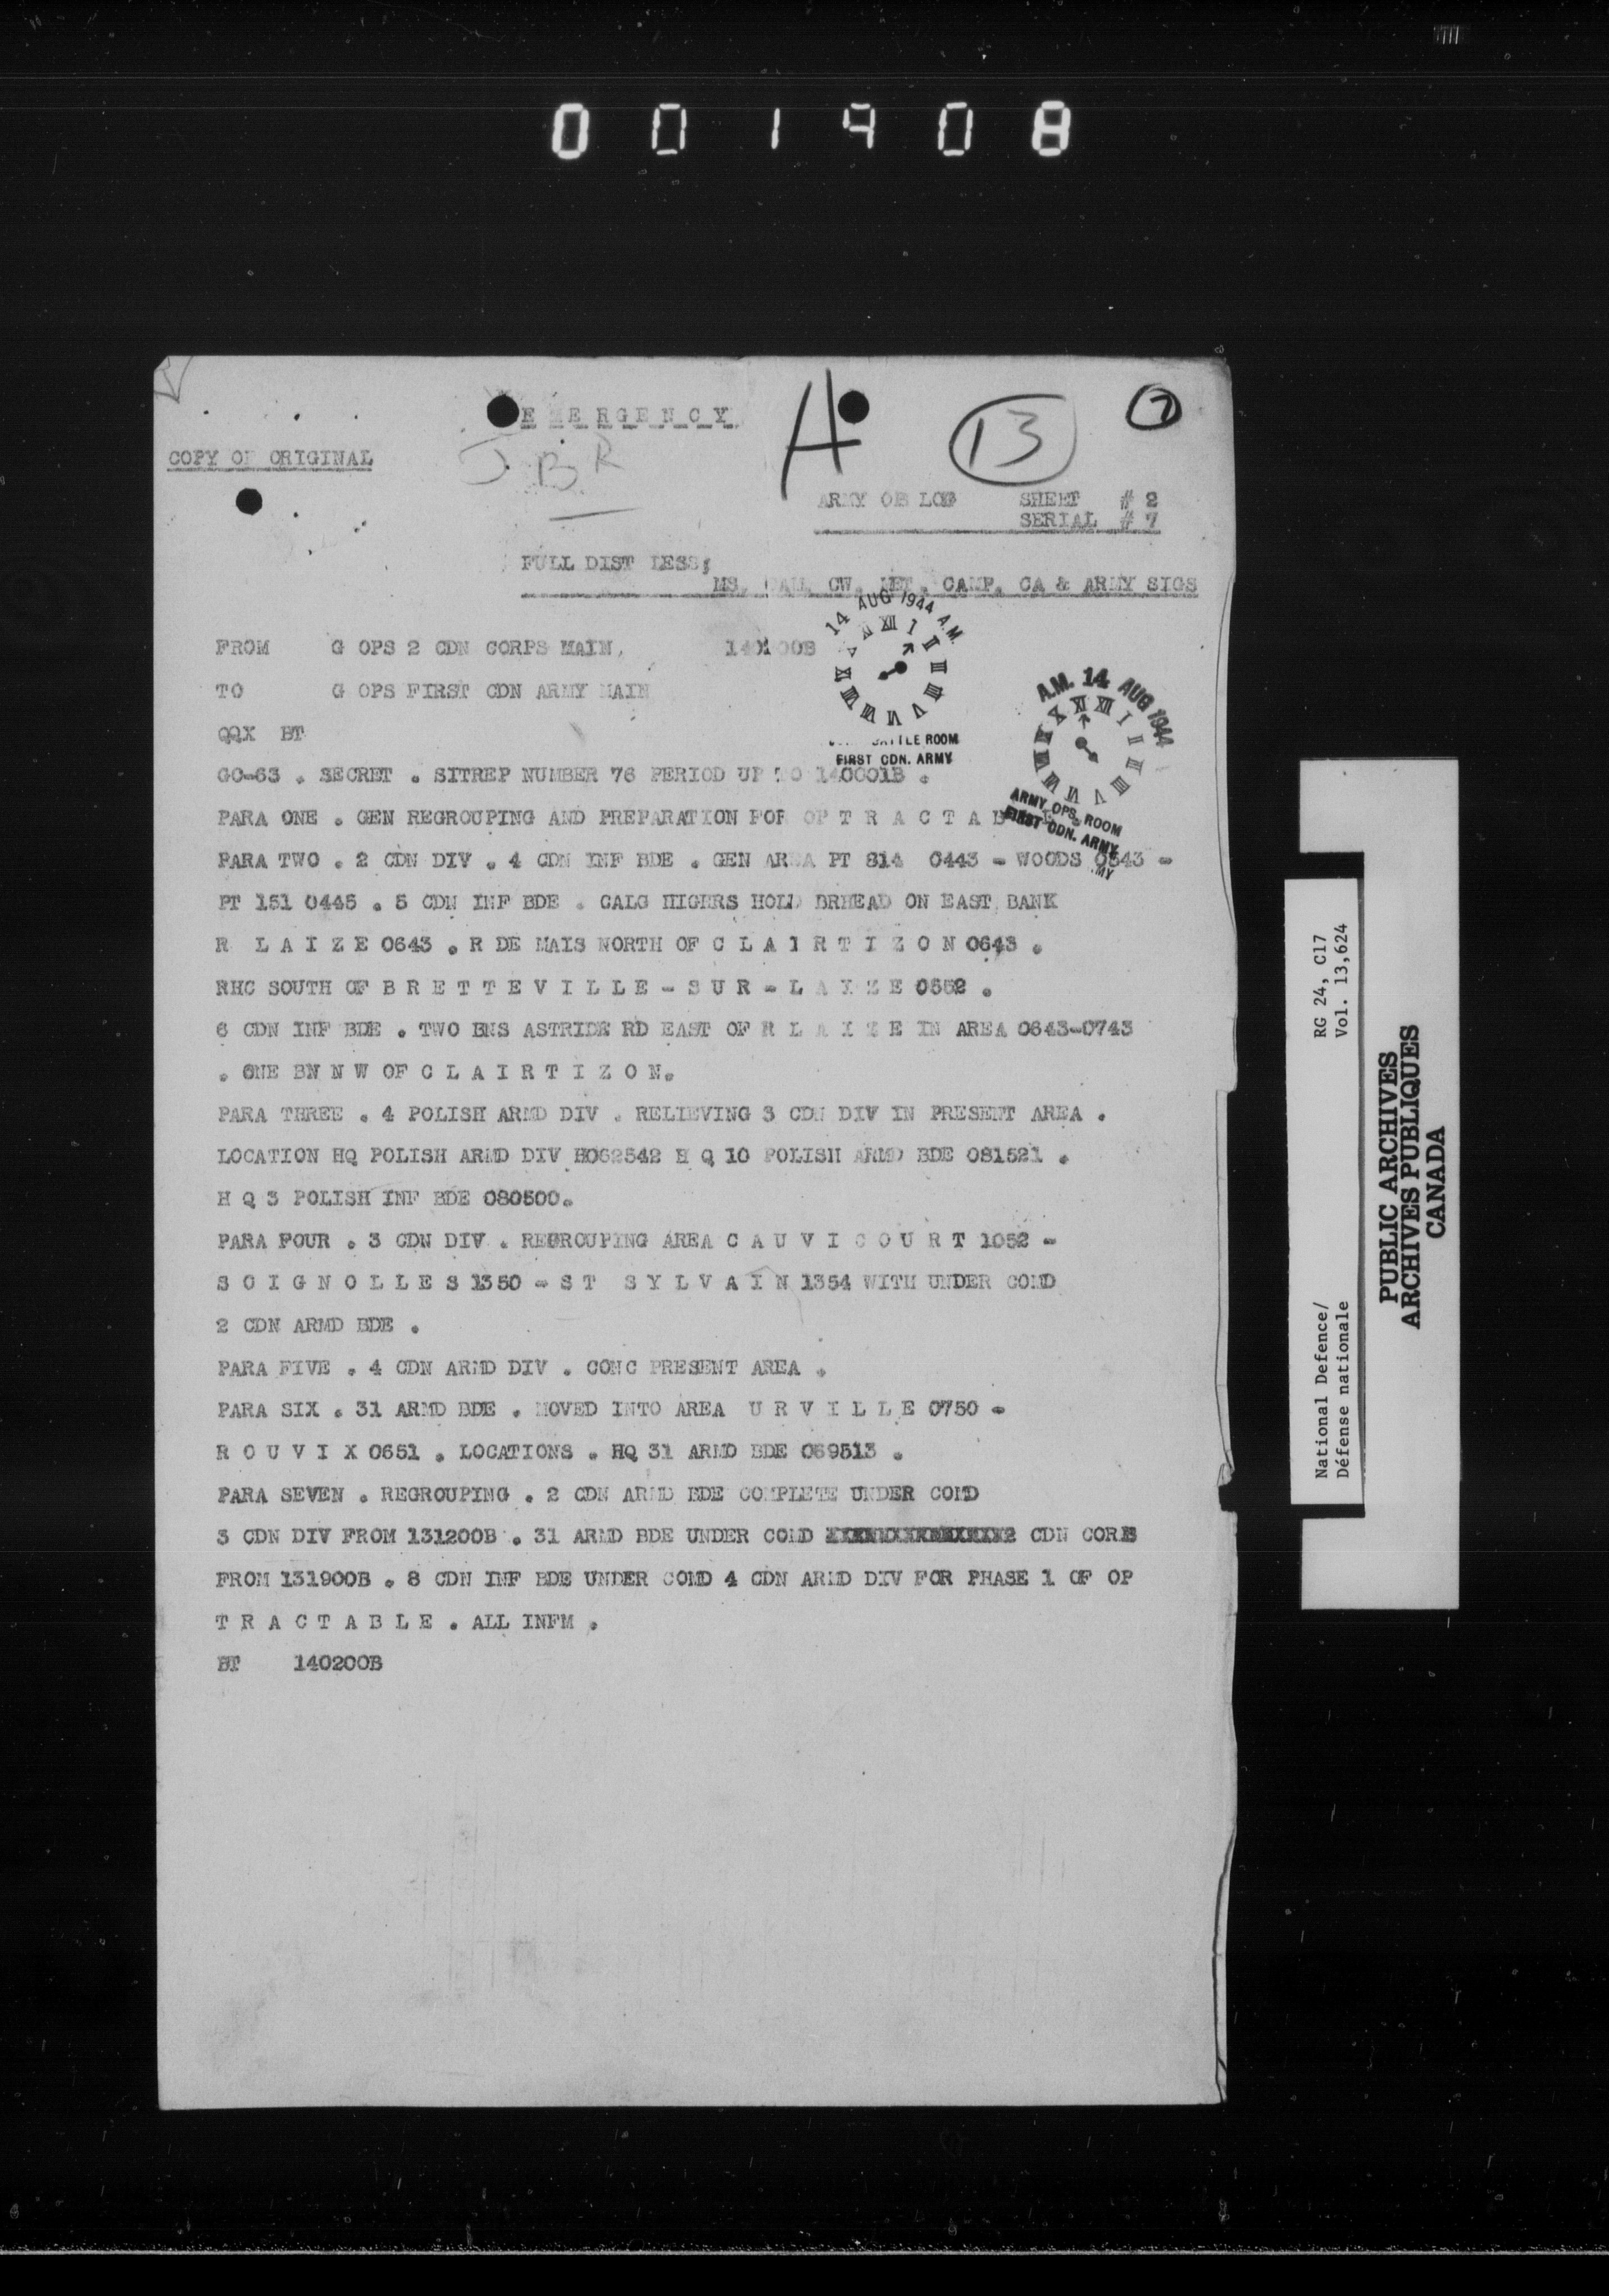 001408
E M E R G E N C Y
J B R
A
13
7
COPY OF ORIGINAL
ARMY OPS LOG SHEET # 2
SERIAL # 7
FULL DIST LESS;
MS, CW, CAMP, CA & ARMY SIGS
14 AUG 1944 A.M.
FROM G OPS 2 CDN CORPS MAIN.
TO G OPS FIRST CDN ARMY MAIN
BATTLE ROOM
FIRST CDN. ARMY
A.M. 14 AUG 1944
ARMY OPS. ROOM
FIRST CDN. ARMY
QQX BT
GO-63 . SECRET . SITREP NUMBER 76 PERIOD UP TO 140001B .
PARA ONE . GEN REGROUPING AND PREPARATION FOR OP T R A C T A B L E .
PARA TWO . 2 CDN DIV . 4 CDN INF BDE . GEN AREA PT 814 0443 - WOODS 0543 -
PT 151 0445 . 5 CDN INF BDE . CALG HIGHRS HOLD BRHEAD ON EAST BANK
R L A I Z E 0643 . R DE MAIS NORTH OF C L A I R T I Z O N 0643 .
RHC SOUTH OF B R E T T E V I L L E - S U R - L A I Z E 0552 .
6 CDN INF BDE . TWO BNS ASTRIDE RD EAST OF R L A I Z E IN AREA 0643-0743
. ONE BN N W OF C L A I R T I Z O N.
PARA THREE . 4 POLISH ARMD DIV . RELIEVING 3 CDN DIV IN PRESENT AREA .
LOCATION HQ POLISH ARMD DIV HO62542 H Q 10 POLISH ARMD BDE 081521 .
H Q 3 POLISH INF BDE 080500.
PARA FOUR . 3 CDN DIV . REGROUPING AREA C A U V I C O U R T 1052 -
S O I G N O L L E S 1350 - S T S Y L V A I N 1354 WITH UNDER COMD
2 CDN ARMD BDE .
PARA FIVE . 4 CDN ARMD DIV . CONC PRESENT AREA .
PARA SIX . 31 ARMD BDE . MOVED INTO AREA U R V I L L E 0750 -
R O U V I X 0651 . LOCATIONS . HQ 31 ARMD BDE 069513 .
PARA SEVEN . REGROUPING . 2 CDN ARMD BDE COMPLETE UNDER COMD
3 CDN DIV FROM 131200B . 31 ARMD BDE UNDER COMD 2 CDN CORPS
FROM 131900B . 8 CDN INF BDE UNDER COMD 4 CDN ARMD DIV FOR PHASE 1 OF OP
T R A C T A B L E . ALL INFM .
BT 140200B
National Defence/
Défense nationale
RG 24, C17
Vol. 13,624
PUBLIC ARCHIVES
ARCHIVES PUBLIQUES
CANADA